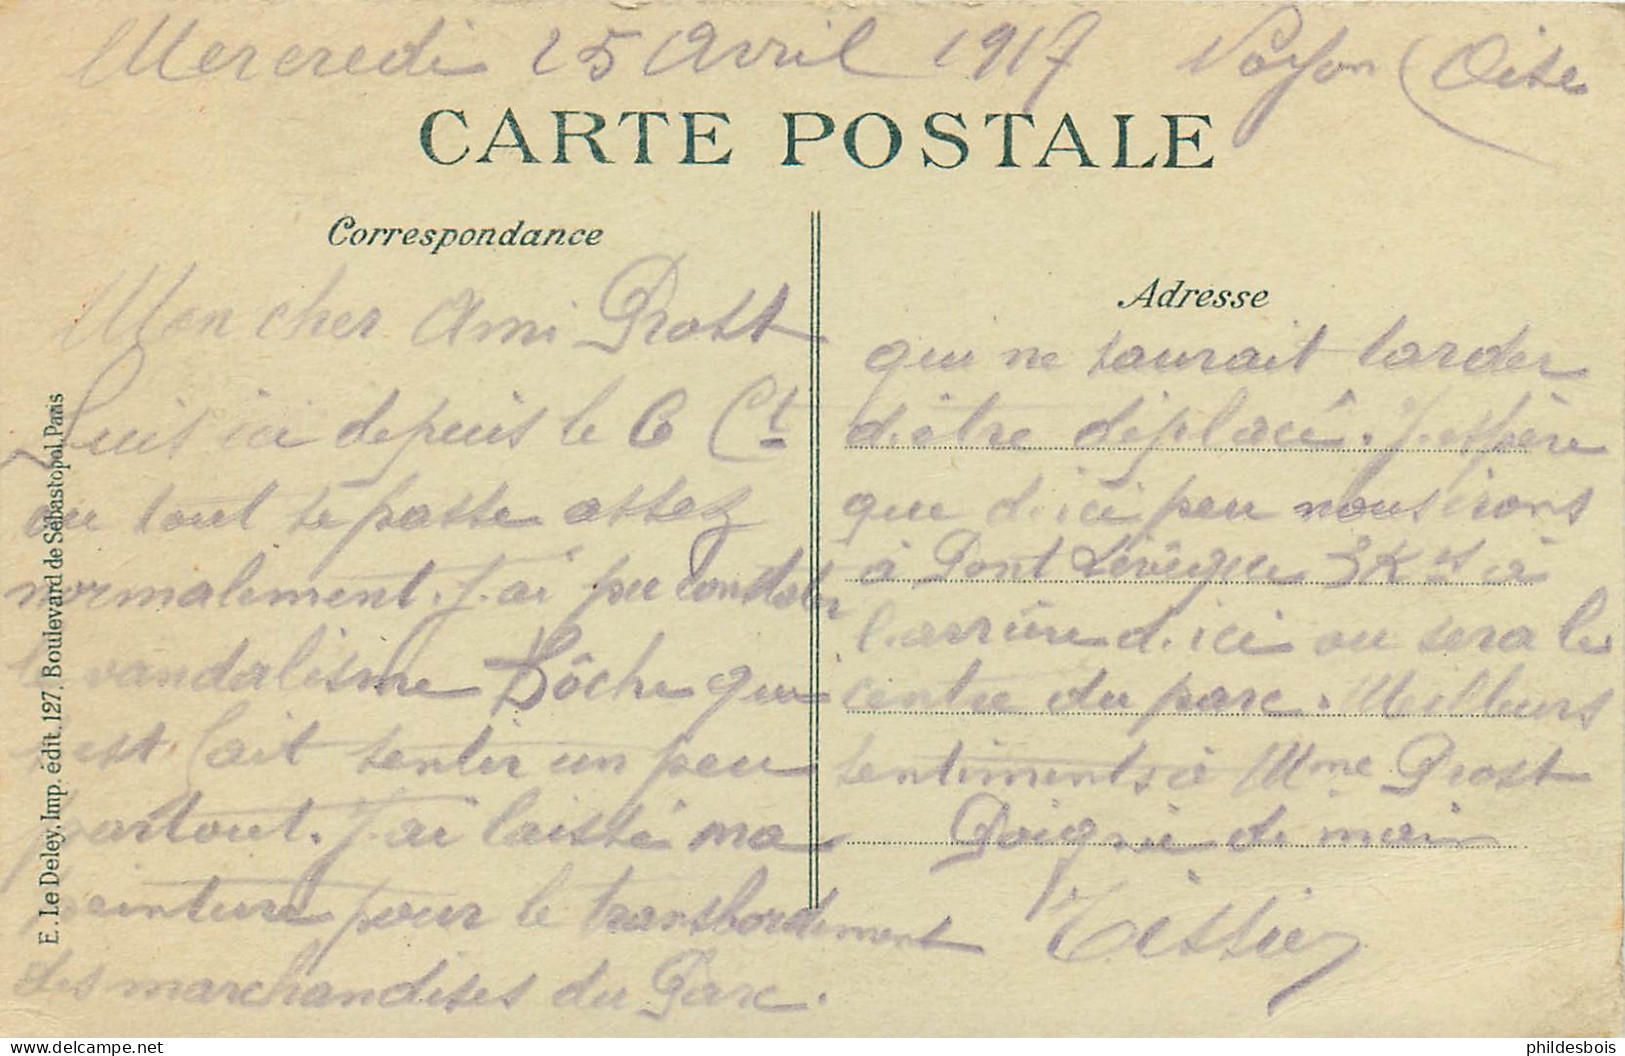 Mercredi 25 Avril 1917 Noyon (Oise
CARTE POSTALE
Correspondance
Mon cher Ami Prost
Suis ici depuis le 6 Ct
ou tout se passe assez
normalement. J'ai pu constater
le vandalisme Bôche qui
s'est fait sentir un peu
partout. J'ai laissé ma
peinture pour le transbordement
des marchandises du Parc.
Adresse
qui ne saurait tarder
d'être déplacé. J'espère
que d'ici peu nous irons
à Pont Lévêque 3 Kts à
l'arrière d'ici ou sera le
centre du parc. Meilleurs
sentiments à Mme Prost
Poignée de main
Tissier
E. Le Deley, Imp. édit, 127, Boulevard de Sébastopol, Paris
phildesbois